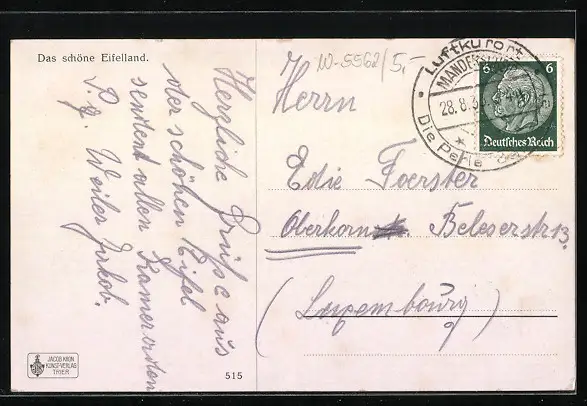 Das schöne Eifelland.
Herzliche Grüße aus
der schönen Eifel
sendet allen Kameraden
P.g. Weiler Jakob.
W-5562/5,-
Luftkurort
MANDERSCHEID
28.8.3
Die Perle
6 6
Deutsches Reich
Herrn
Edie Foerster
Oberkorn Beleserstr 13.
(Luxembourg)
JACOB KRON
KUNST-VERLAG
TRIER
515